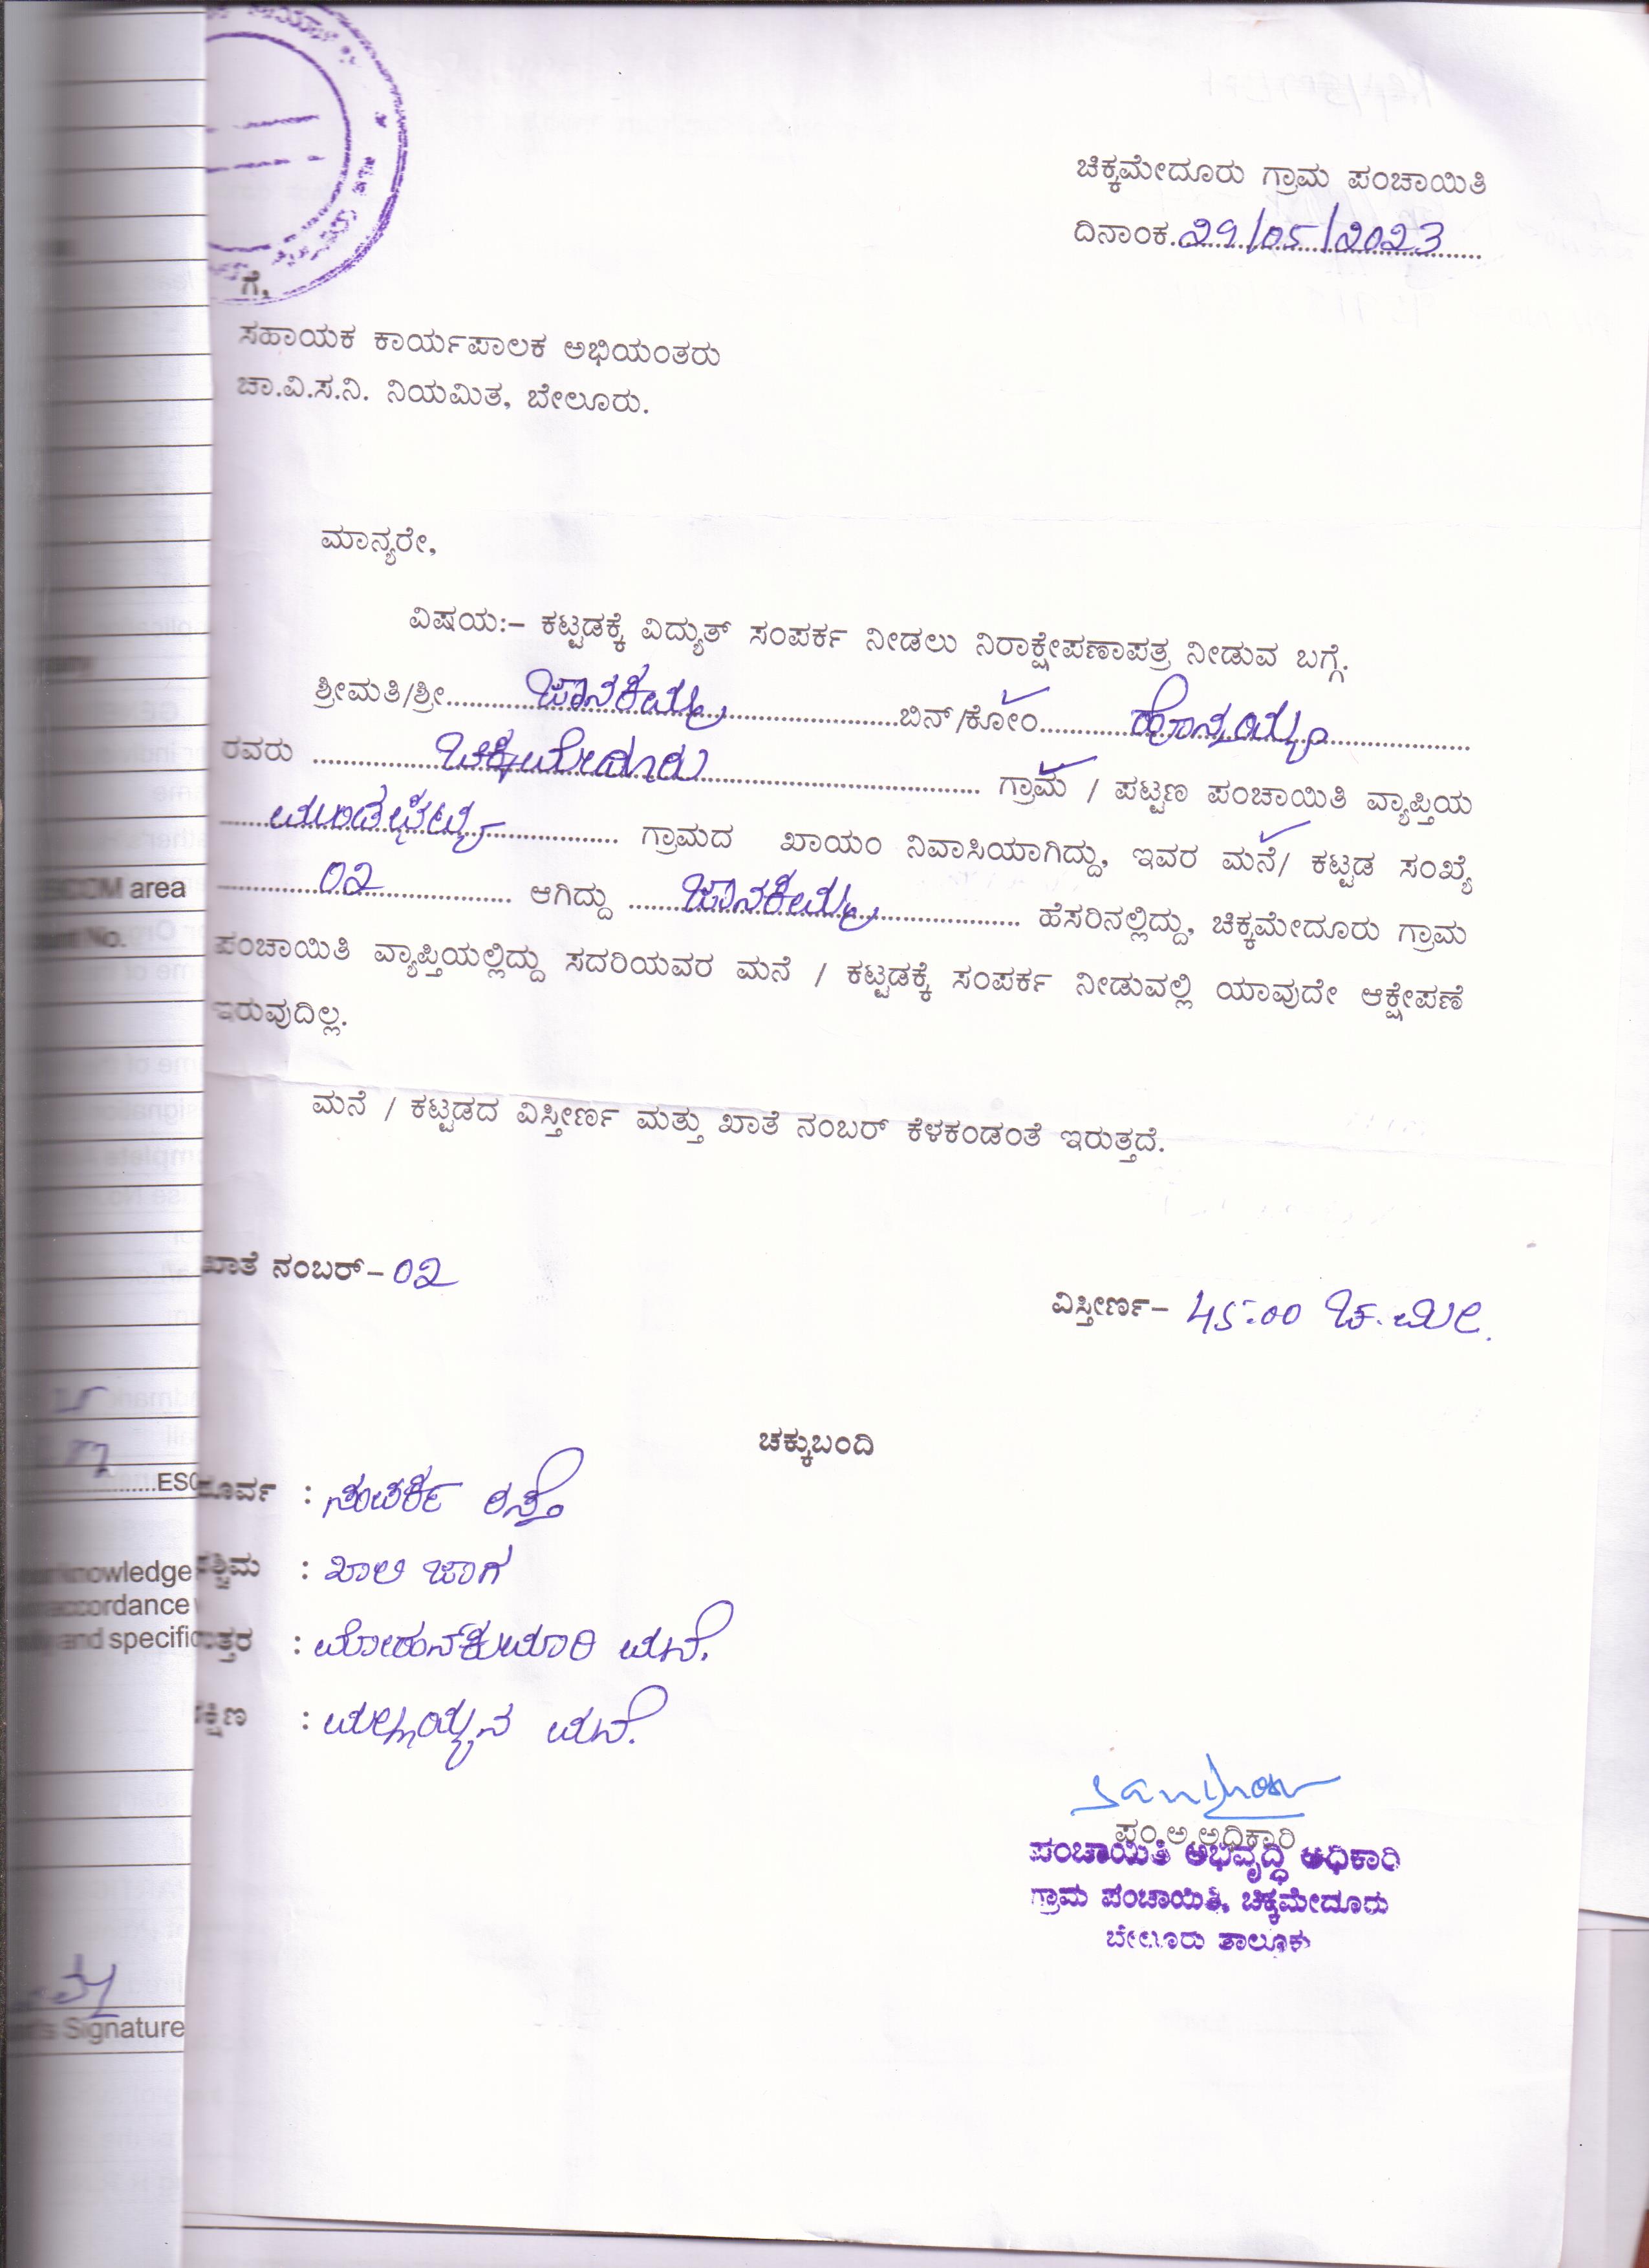 ಚಿಕ್ಕಮೇದೂರು ಗ್ರಾಮ ಪಂಚಾಯಿತಿ
ದಿನಾಂಕ.29/05/2023
ಗೆ,
ಸಹಾಯಕ ಕಾರ್ಯಪಾಲಕ ಅಭಿಯಂತರು
ಚಾ.ವಿ.ಸ.ನಿ. ನಿಯಮಿತ, ಬೇಲೂರು.
ಮಾನ್ಯರೇ,
ವಿಷಯ:- ಕಟ್ಟಡಕ್ಕೆ ವಿದ್ಯುತ್ ಸಂಪರ್ಕ ನೀಡಲು ನಿರಾಕ್ಷೇಪಣಾಪತ್ರ ನೀಡುವ ಬಗ್ಗೆ.
ಶ್ರೀಮತಿ/ಶ್ರೀ. ಜಾನಕಮ್ಮ ಬಿನ್/ಕೋಂ
ರವರು ಚಿಕ್ಕಮೇದೂರು ಗ್ರಾಮ / ಪಟ್ಟಣ ಪಂಚಾಯಿತಿ ವ್ಯಾಪ್ತಿಯ
ಗ್ರಾಮದ ಖಾಯಂ ನಿವಾಸಿಯಾಗಿದ್ದು, ಇವರ ಮನೆ/ ಕಟ್ಟಡ ಸಂಖ್ಯೆ
02 ಆಗಿದ್ದು ಜಾನಕಮ್ಮ ಹೆಸರಿನಲ್ಲಿದ್ದು, ಚಿಕ್ಕಮೇದೂರು ಗ್ರಾಮ
ಪಂಚಾಯಿತಿ ವ್ಯಾಪ್ತಿಯಲ್ಲಿದ್ದು ಸದರಿಯವರ ಮನೆ / ಕಟ್ಟಡಕ್ಕೆ ಸಂಪರ್ಕ ನೀಡುವಲ್ಲಿ ಯಾವುದೇ ಆಕ್ಷೇಪಣೆ
ಇರುವುದಿಲ್ಲ.
ಮನೆ / ಕಟ್ಟಡದ ವಿಸ್ತೀರ್ಣ ಮತ್ತು ಖಾತೆ ನಂಬರ್ ಕೆಳಕಂಡಂತೆ ಇರುತ್ತದೆ.
ಖಾತೆ ನಂಬರ್ – 02
ವಿಸ್ತೀರ್ಣ– 45.00 ಚ.ಮೀ.
ಚಕ್ಕುಬಂದಿ
ಪೂರ್ವ : ಸಂಪರ್ಕ ರಸ್ತೆ
ಪಶ್ಚಿಮ : ಖಾಲಿ ಜಾಗ
ಉತ್ತರ : ಮೋಹನ್‌ಕುಮಾರಿ ಮನೆ.
ದಕ್ಷಿಣ : ಮಲ್ಲಯ್ಯನ ಮನೆ.
ಪಂ.ಅ.ಅಧಿಕಾರಿ
ಪಂಚಾಯಿತಿ ಅಭಿವೃದ್ಧಿ ಅಧಿಕಾರಿ
ಗ್ರಾಮ ಪಂಚಾಯಿತಿ, ಚಿಕ್ಕಮೇದೂರು
ಬೇಲೂರು ತಾಲ್ಲೂಕು
area
No.
knowledge
accordance
and specific
Signature